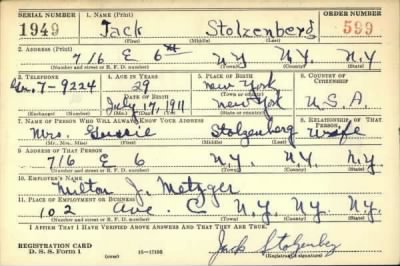 SERIAL NUMBER 1. NAME (Print) ORDER NUMBER
1949 Jack Stolzenberg 599
(First) (Middle) (Last)
2. ADDRESS (Print)
716 E 6th N.Y. N.Y. N.Y
(Number and street or R. F. D. number) (Town) (County) (State)
3. TELEPHONE 4. AGE IN YEARS 5. PLACE OF BIRTH 6. COUNTRY OF CITIZENSHIP
Gr. 7-9224 29 New York
DATE OF BIRTH (Town or county)
July 17, 1911 New York U.S.A.
(Exchange) (Number) (Mo.) (Day) (Yr.) (State or country)
7. NAME OF PERSON WHO WILL ALWAYS KNOW YOUR ADDRESS 8. RELATIONSHIP OF THAT PERSON
Mrs. Gussie Stolzenberg Wife
(Mr., Mrs., Miss) (First) (Middle) (Last)
9. ADDRESS OF THAT PERSON
716 E 6 N.Y. N.Y. N.Y.
(Number and street or R. F. D. number) (Town) (County) (State)
10. EMPLOYER'S NAME
Milton J. Metzger
11. PLACE OF EMPLOYMENT OR BUSINESS
102 Ave. C N.Y. N.Y. N.Y.
(Number and street or R. F. D. number) (Town) (County) (State)
I AFFIRM THAT I HAVE VERIFIED ABOVE ANSWERS AND THAT THEY ARE TRUE.
REGISTRATION CARD
D. S. S. Form 1 (over) 16-17105 Jack Stolzenberg
(Registrant's signature)